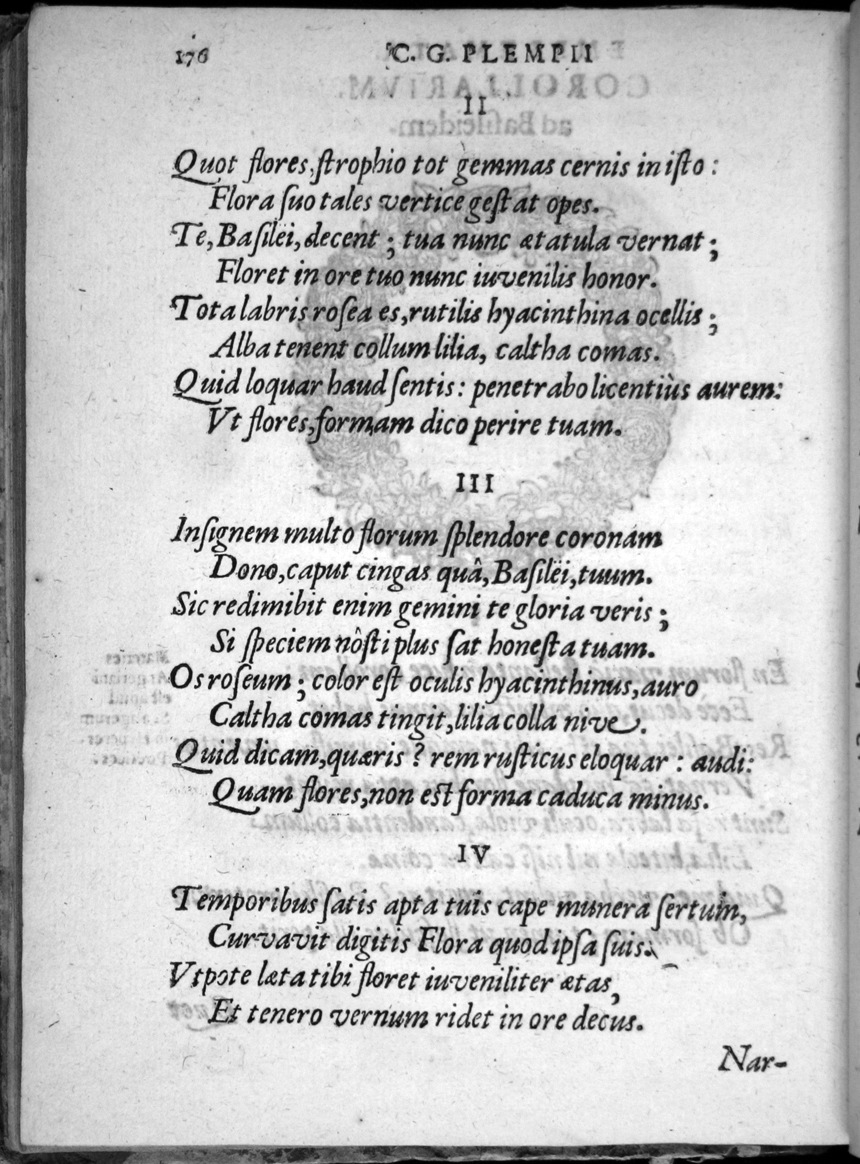 176 C. G. PLEMPII
II
Quot flores, ſtrophio tot gemmas cernis in iſto :
Flora ſuo tales vertice geſtat opes.
Te, Baſilëi, decent ; tua nunc ætatula vernat ;
Floret in ore tuo nunc iuvenilis honor.
Tota labris roſea es, rutilis hyacinthina ocellis ;
Alba tenent collum lilia, caltha comas.
Quid loquar haud ſentis : penetrabo licentiùs aurem:
Vt flores, formam dico perire tuam.
III
Inſignem multo florum ſplendore coronam
Dono, caput cingas quâ, Baſilëi, tuum.
Sic redimibit enim gemini te gloria veris ;
Si ſpeciem nôſti plus ſat honeſta tuam.
Os roſeum ; color eſt oculis hyacinthinus, auro
Caltha comas tingit, lilia colla nive.
Quid dicam, quæris ? rem ruſticus eloquar : audi:
Quam flores, non eſt forma caduca minus.
IV
Temporibus ſatis apta tuis cape munera ſertum,
Curvavit digitis Flora quod ipſa ſuis.
Vtpote læta tibi floret iuveniliter ætas,
Et tenero vernum ridet in ore decus.
Nar-